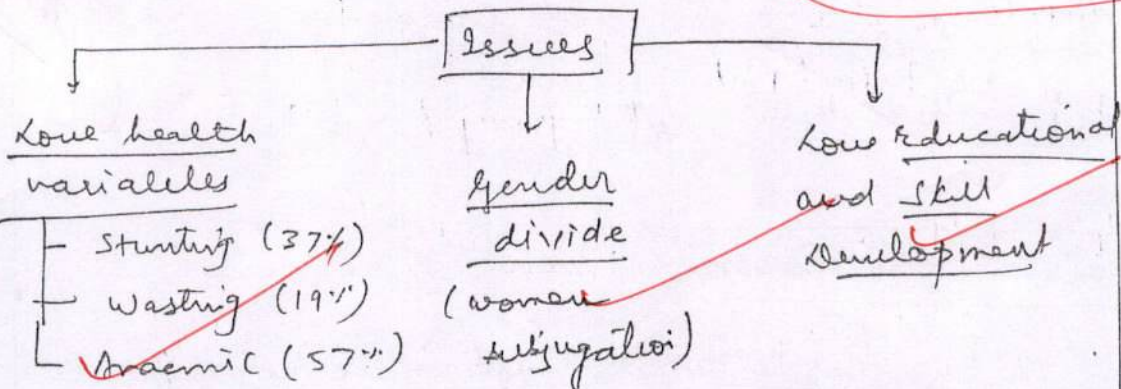 Issues
Low health
variables
Stunting (37%)
Wasting (19%)
Anaemic (57%)
Gender
divide
(women
subjugation)
Low Educational
and Skill
Development